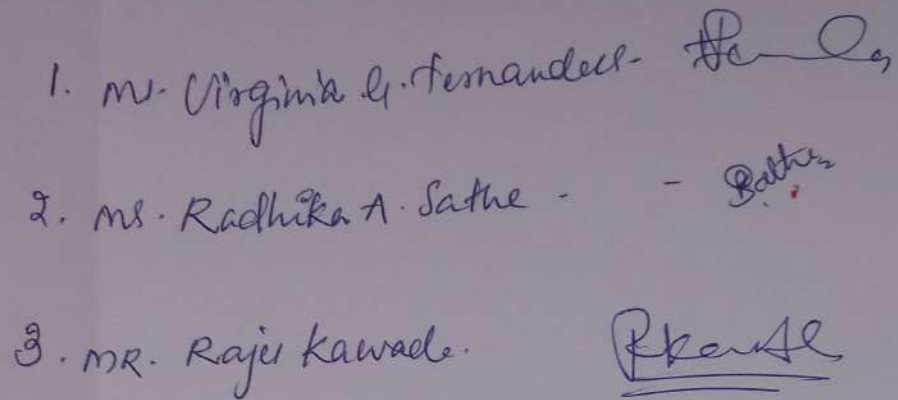 1. Ms. Virginia G. Fernandes -
2. Ms. Radhika A. Sathe - -
3. MR. Raju Kawade.